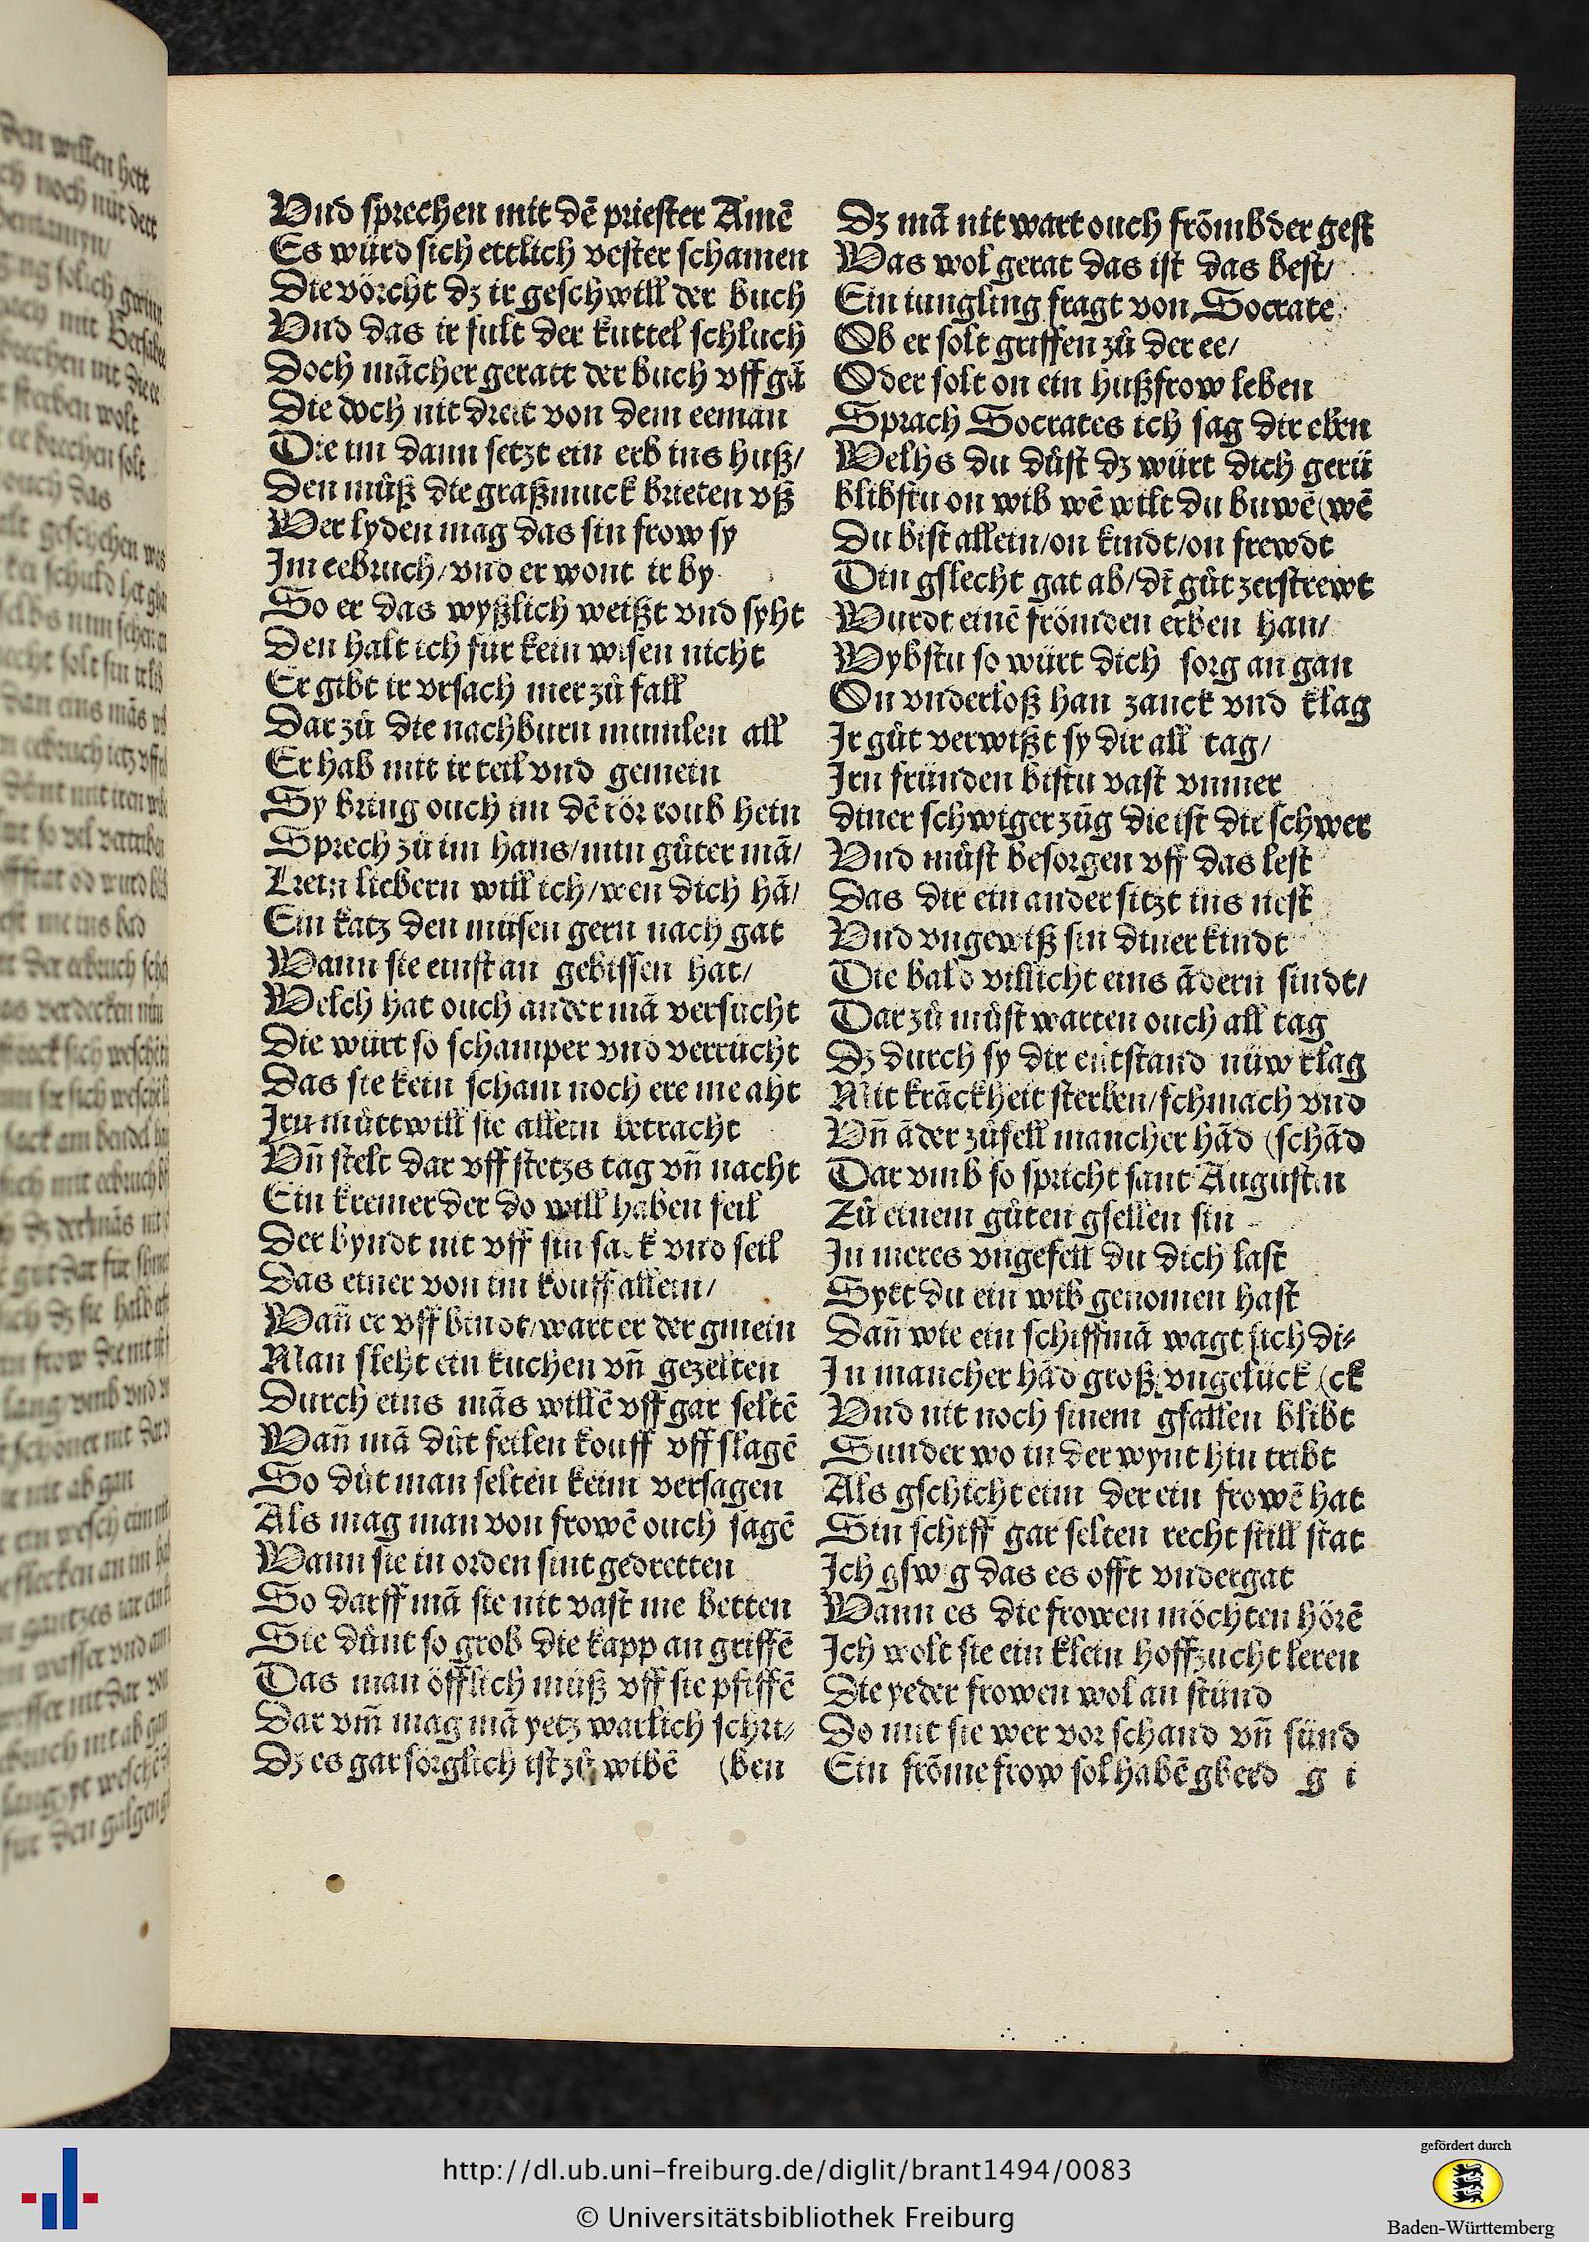 Vnd sprechen mit dē priester Amē
Es würd sich ettlich vester schamen
Die vörcht dz ir geschwill der buch
Vnd das ir fult der kuttel schluch
Doch mācher geratt der buch vff gā
Die doch nit dreit von dem eeman
Die im dann setzt ein erb ins huß/
Den můß die graßmuck brieten vß
Wer lyden mag das sin frow sy
Im eebruch/vnd er wont ir by
So er das wyßlich weißt vnd syht
Den halt ich für kein wisen nicht
Er gibt ir vrsach mer zů fall
Dar zů die nachburn mumlen all
Er hab mit ir teil vnd gemein
Sy bring ouch im dē rör roub hein
Sprech zů im hans/min gůter mā/
Kein liebern will ich/wen dich hā/
Ein katz den müsen gern nach gat
Wann sie einst an gebissen hat/
Welch hat ouch ander mā versucht
Die würt so schamper vnd verrücht
Das sie kein scham noch ere me aht
Irn můttwill sie allein betracht
Vñ stelt dar vff stetzs tag vñ nacht
Ein kremer der do will haben feil
Der byndt nit vff sin sack vnd seil
Das einer von im kouff allein/
Wañ er vff bindt/wart er der gmein
Man sieht ein kuchen vñ gezelten
Durch eins mās willē vff gar seltē
Wañ mā důt feilen kouff vff slagē
So důt man selten keim versagen
Als mag man von frowē ouch sagē
Wann sie in orden sint gedretten
So darff mā sie nit vast me betten
Sie důnt so grob die kapp an griffē
Das man öfflich můß vff sie pfiffē
Dar vm̄ mag mā yetz warlich schri-
Dz es gar sörglich ist zů wibē (ben
Dz mā nit wart ouch frōmbder gest
Was wol gerat das ist das best/
Ein iungling fragt von Socrate
Ob er solt griffen zů der ee/
Oder solt on ein hußfrow leben
Sprach Socrates ich sag dir eben
Welhs du důst dz würt dich gerü
blibstu on wib wē wilt du buwē (wē
Du bist allein/on kindt/on frewdt
Din gslecht gat ab/dī gůt zerstrewt
Wurdt einē frömden erben han/
Wybstu so würt dich sorg an gan
On vnderloß han zanck vnd klag
Ir gůt verwißt sy dir all tag/
Irn fründen bistu vast vnmer
diner schwiger züg die ist dir schwer
Vnd můst besorgen vff das lest
Das dir ein ander sitzt ins nest
Vnd vngewiß sin diner kindt
Die bald villicht eins ādern sindt/
Dar zů můst warten ouch all tag
Dz durch sy dir entstand nüw klag
Mit krāckheit sterben/schmach vnd
Vñ āder zůfell mancher hād (schād
Dar vmb so spricht sant Augustin
Zů einem gůten gsellen sin
In meres vngefell du dich last
Sytt du ein wib genomen hast
Dañ wie ein schiffmā wagt sich di-
In mancher hād groß vngelück (ck
Vnd nit noch sinem gfallen blibt
Sunder wo in der wynt hin tribt
Als gschicht eim der ein frowē hat
Sin schiff gar selten recht still stat
Ich gswig das es offt vndergat
Wann es die frowen möchten hörē
Ich wolt sie ein klein hoffzucht leren
Die yeder frowen wol an stünd
Do mit sie wer vor schand vñ sünd
Ein frōme frow sol habē gberd g i
http://dl.ub.uni-freiburg.de/diglit/brant1494/0083
© Universitätsbibliothek Freiburg
gefördert durch
Baden-Württemberg